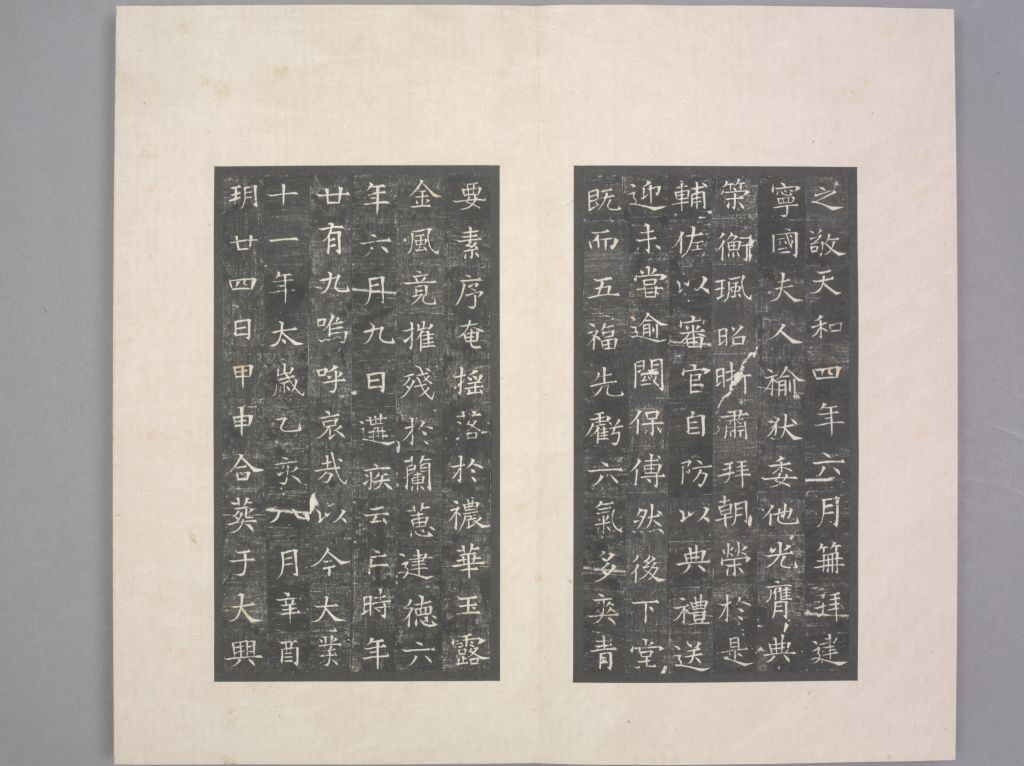 之敬天和四年六月筭拜建
寧國夫人褕狄委他光膺典
策衡珮昭晣肅拜朝榮於是
輔佐以審官自防以典禮送
迎未嘗逾閾保傅然後下堂
既而五福先虧六氣多爽青
要素序奄摇落於禯華玉露
金風竟摧殘於蘭蕙建德六
年六月九日遘疾云亡時年
廿有九嗚呼哀哉以今大業
十一年太歲乙亥八月辛酉
玥廿四日甲申合葬于大興